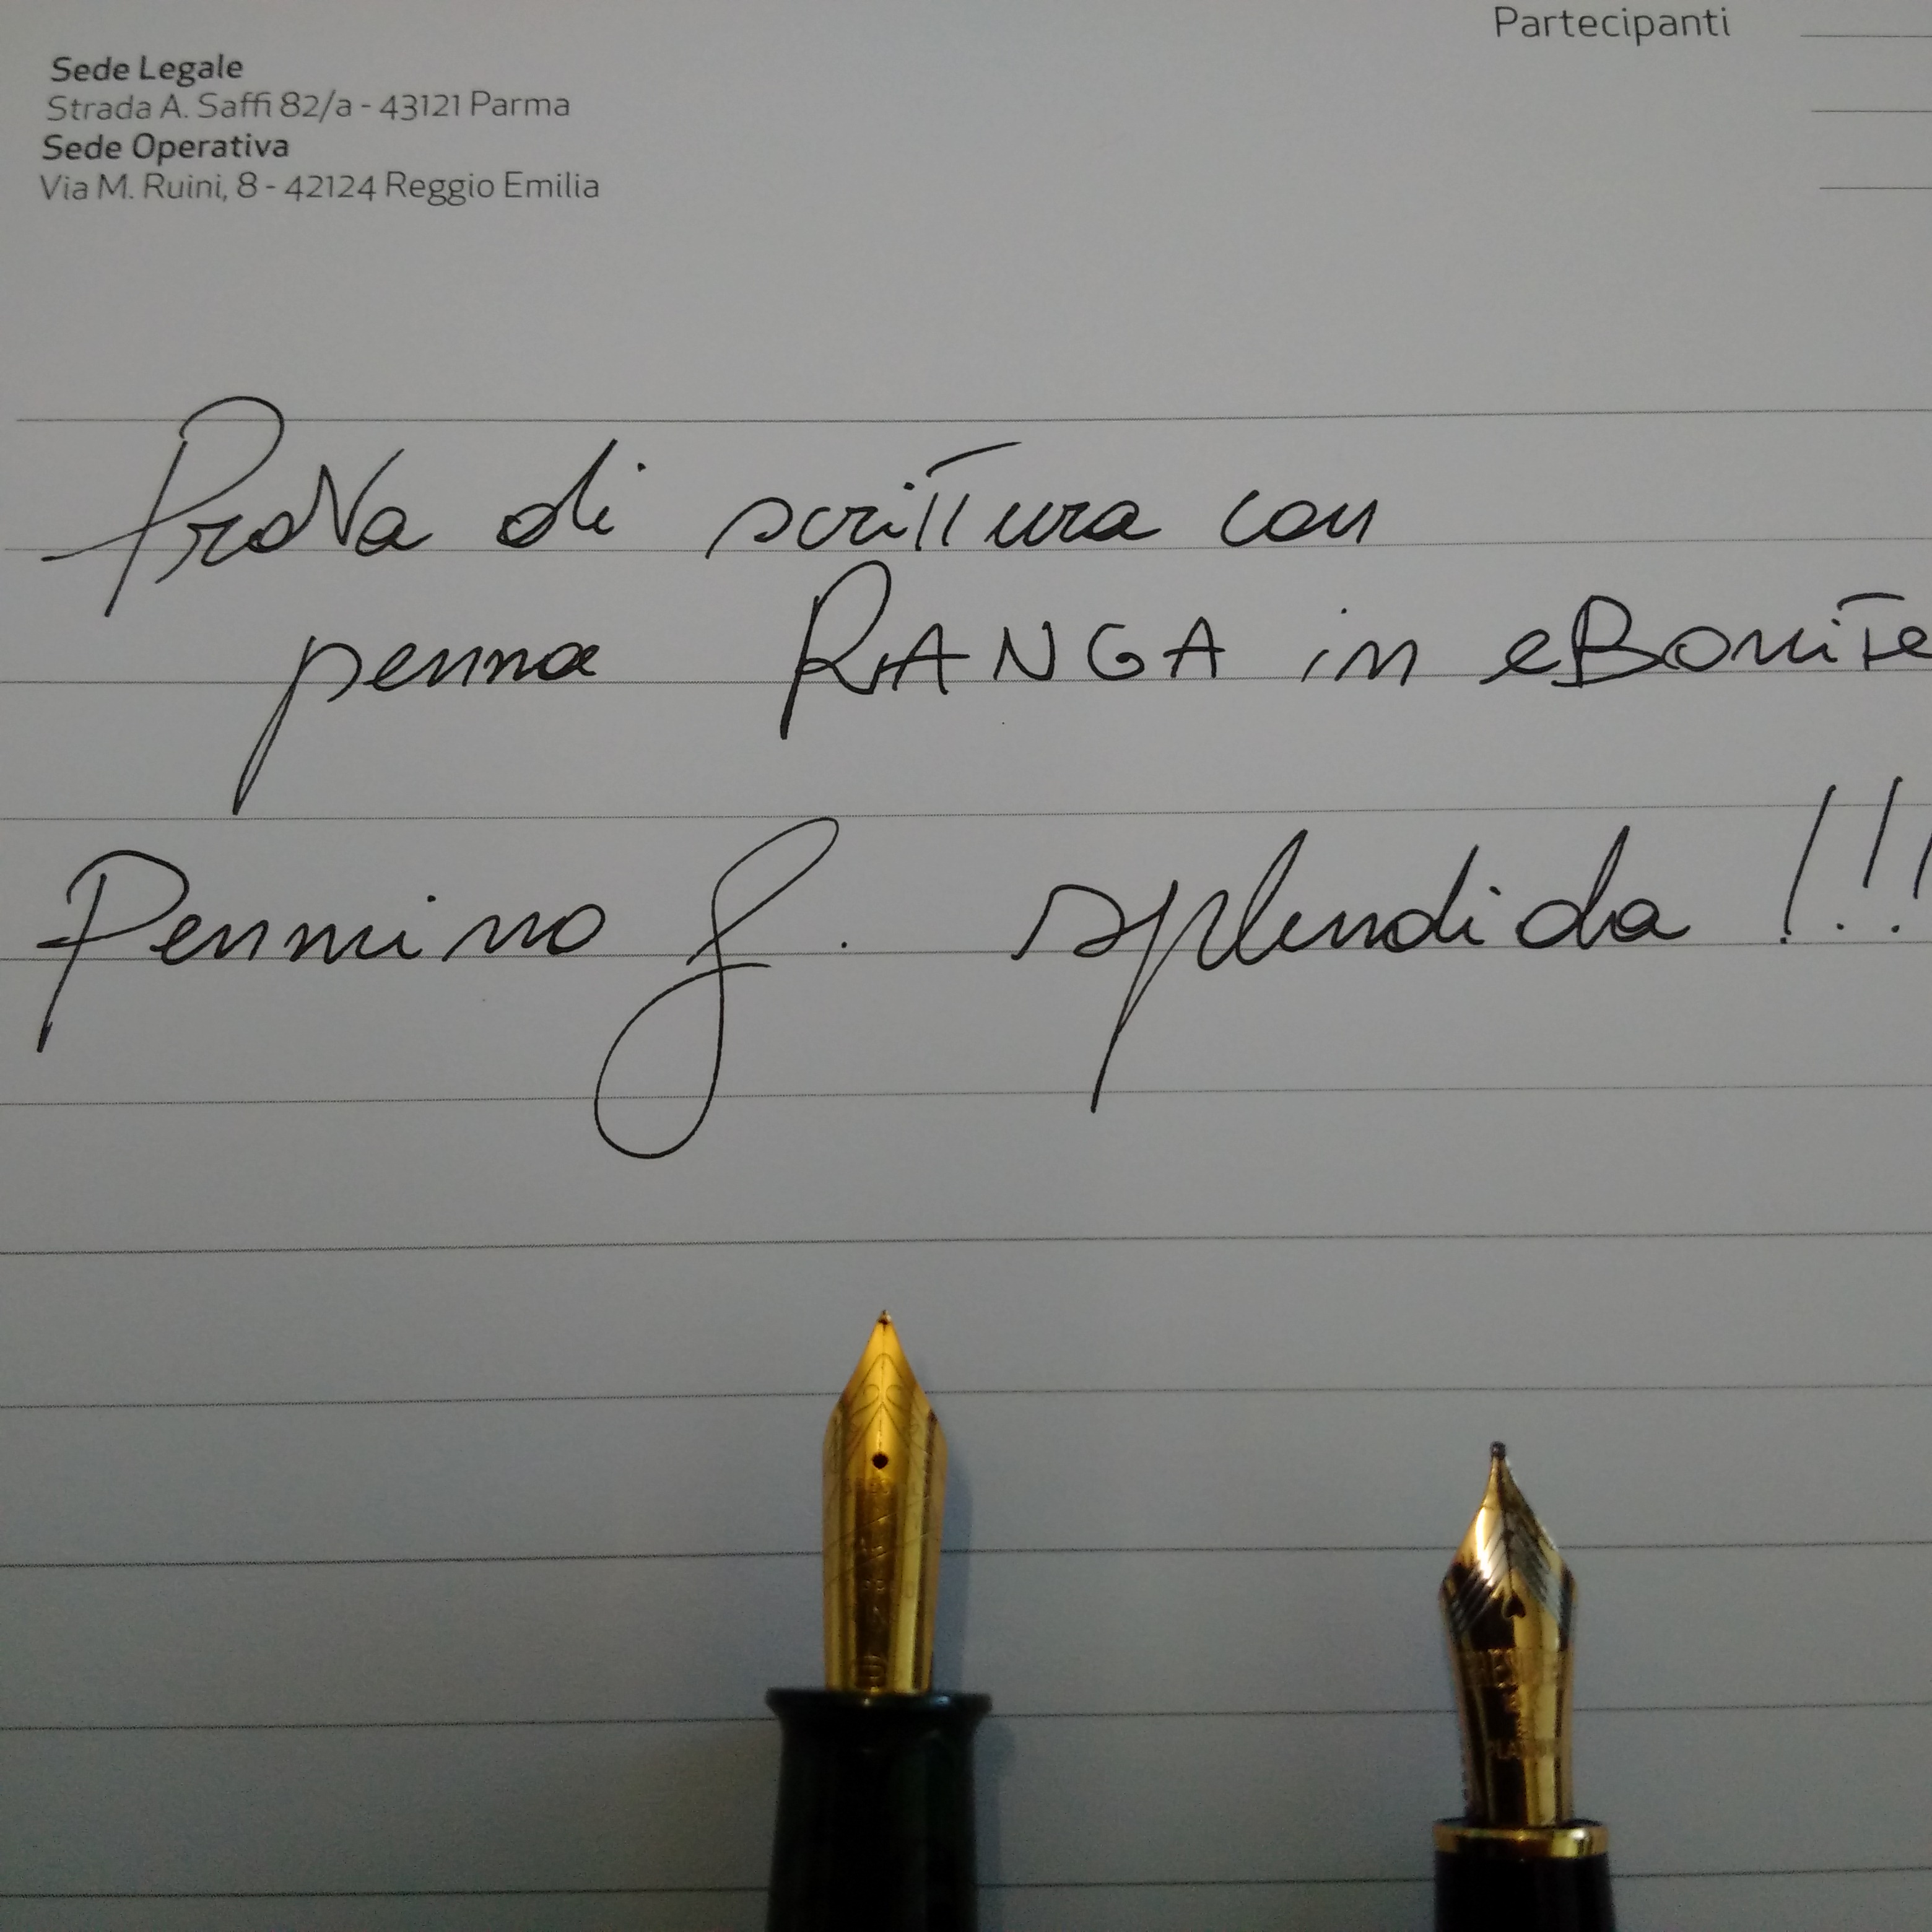 Partecipanti
Sede Legale
Strada A. Saffi 82/a - 43121 Parma
Sede Operativa
Via M. Ruini, 8 - 42124 Reggio Emilia
ProVa di scrittura con
penna RANGA in eBonite
Pennino f. splendida !!!